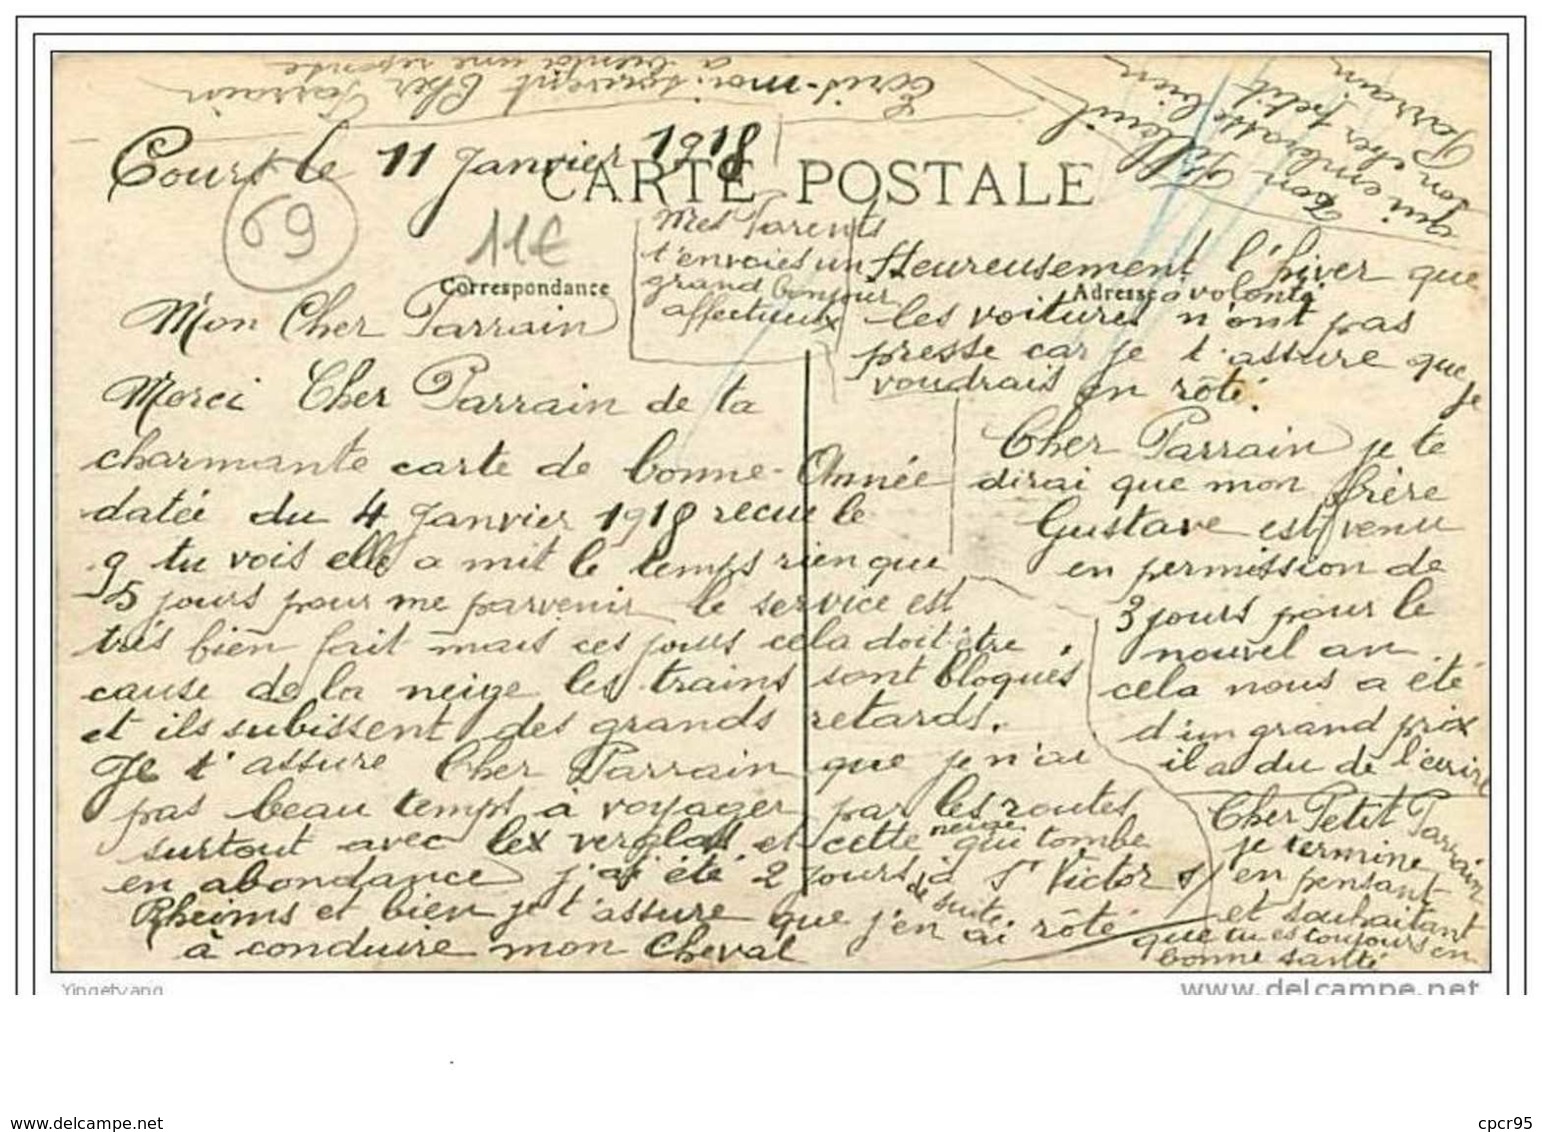 Cours le 11 Janvier 1918
CARTE POSTALE
69
11€
Correspondance
Adresse
Mon Cher Parrain
Merci Cher Parrain de ta
charmante carte de bonne-Année
datée du 4 Janvier 1918 recue le
9 tu vois elle a mit le temps rien que
5 jours pour me parvenir le service est
très bien fait mais ces jours cela doit être
cause de la neige les trains sont bloqués
et ils subissent des grands retards.
Je t'assure Cher Parrain que je n'ai
pas beau temps à voyager par les routes
surtout avec les verglas et cette neige qui tombe
en abondance j'ai été 2 jours à St Victor s/
Rheims et bien je t'assure que j'en ai rôté de suite
à conduire mon Cheval
Heureusement l'hiver que
les voitures n'ont pas a volonté
presse car je t'assure que je
voudrais en rôté.
Cher Parrain je te
dirai que mon frère
Gustave est venu
en permission de
3 jours pour le
nouvel an.
cela nous a été
d'un grand prix
il a du de l'ecrire
Cher Petit Parrain
je termine
en pensant
et souhaitant
que tu es toujours en
bonne santé
Mes Parents
t'envoies un
grand bonjour
affectueux
Ton Filleul
qui embrasse bien
son cher petit
Parrain
Ecris-moi souvent Cher Parrain
a bientot une reponse
Yingetyang
www.delcampe.net
www.delcampe.net
cpcr95